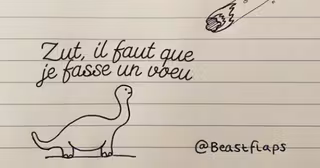 Zut, il faut que
je fasse un voeu
@Beastflaps